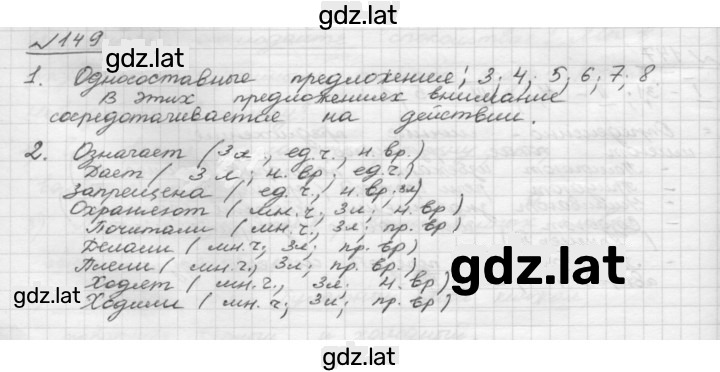 gdz.lat
№149
gdz.lat
1. Односоставные предложение: 3; 4; 5; 6; 7; 8
В этих предложениях внимание
сосредотачивается на действии.
2. Означает (3л, ед.ч., н.вр.)
Дает (3л; н.вр; ед.ч.)
Запрещена (ед.ч., н.вр, 3л)
Охраняют (мн.ч; 3л; н.вр)
Почитали (мн.ч., 3л; пр.вр.)
Делали (мн.ч; 3л; пр.вр)
Плели (мн.ч., 3л; пр.вр.)
gdz.lat
Ходят (мн.ч., 3л; н.вр)
gdz.lat
Ходили (мн.ч; 3л; пр.вр)
gdz.lat